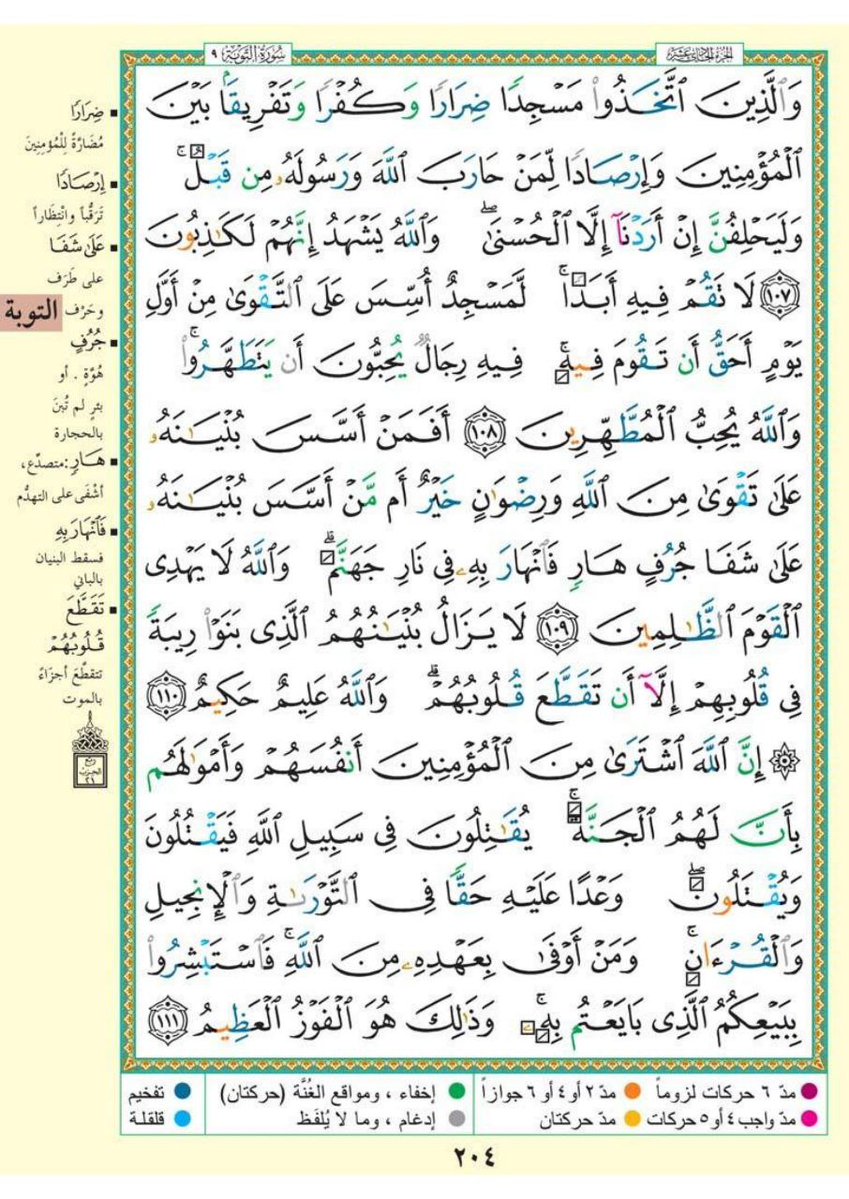 سُورَةُ التَّوْبَة ٩
الجزء الحادي عشر
وَالَّذِينَ اتَّخَذُوا مَسْجِدًا ضِرَارًا وَكُفْرًا وَتَفْرِيقًا بَيْنَ
الْمُؤْمِنِينَ وَإِرْصَادًا لِّمَنْ حَارَبَ اللَّهَ وَرَسُولَهُۥ مِن قَبْلُ ۚ
وَلَيَحْلِفُنَّ إِنْ أَرَدْنَآ إِلَّا الْحُسْنَىٰ ۖ وَاللَّهُ يَشْهَدُ إِنَّهُمْ لَكَـٰذِبُونَ
١٠٧ لَا تَقُمْ فِيهِ أَبَدًا ۚ لَّمَسْجِدٌ أُسِّسَ عَلَى التَّقْوَىٰ مِنْ أَوَّلِ
يَوْمٍ أَحَقُّ أَن تَقُومَ فِيهِ ۚ فِيهِ رِجَالٌ يُحِبُّونَ أَن يَتَطَهَّرُوا ۚ
وَاللَّهُ يُحِبُّ الْمُطَّهِّرِينَ ١٠٨ أَفَمَنْ أَسَّسَ بُنْيَـٰنَهُۥ
عَلَىٰ تَقْوَىٰ مِنَ اللَّهِ وَرِضْوَٰنٍ خَيْرٌ أَم مَّنْ أَسَّسَ بُنْيَـٰنَهُۥ
عَلَىٰ شَفَا جُرُفٍ هَارٍ فَانْهَارَ بِهِۦ فِى نَارِ جَهَنَّمَ ۗ وَاللَّهُ لَا يَهْدِى
الْقَوْمَ الظَّـٰلِمِينَ ١٠٩ لَا يَزَالُ بُنْيَـٰنُهُمُ الَّذِى بَنَوْا رِيبَةً
فِى قُلُوبِهِمْ إِلَّآ أَن تَقَطَّعَ قُلُوبُهُمْ ۗ وَاللَّهُ عَلِيمٌ حَكِيمٌ ١١٠
۞ إِنَّ اللَّهَ اشْتَرَىٰ مِنَ الْمُؤْمِنِينَ أَنفُسَهُمْ وَأَمْوَٰلَهُم
بِأَنَّ لَهُمُ الْجَنَّةَ ۚ يُقَـٰتِلُونَ فِى سَبِيلِ اللَّهِ فَيَقْتُلُونَ
وَيُقْتَلُونَ ۖ وَعْدًا عَلَيْهِ حَقًّا فِى التَّوْرَىٰةِ وَالْإِنجِيلِ
وَالْقُرْءَانِ ۚ وَمَنْ أَوْفَىٰ بِعَهْدِهِۦ مِنَ اللَّهِ ۚ فَاسْتَبْشِرُوا
بِبَيْعِكُمُ الَّذِى بَايَعْتُم بِهِۦ ۚ وَذَٰلِكَ هُوَ الْفَوْزُ الْعَظِيمُ ١١١
ضِرَارًا
مُضَارَّةً لِلْمُؤمِنِينَ
إرْصَادًا
تَرَقُّباً وانْتِظَاراً
عَلَىٰ شَفَا
على طَرَف
وحَرْف
التوبة
جُرُفٍ
هُوَّةٍ . أو
بئرٍ لم تُبنَ
بالحجارة
هَارٍ: متصدِّع،
أشْفَى على التهدُّم
فَانْهَارَ بِهِ
فسقط البنيان
بالباني
تَقَطَّعَ
قُلُوبُهُمْ
تتقطَّعَ أجزَاءً
بالموت
ربع
الحزب
٢١
مدّ ٦ حركات لزوماً مدّ ٢ أو ٤ أو ٦ جوازاً إخفاء ، ومواقع الغُنَّة (حركتان) تفخيم
مدّ واجب ٤ أو ٥ حركات مدّ حركتان إدغام ، وما لا يُلفَظ قلقلة
٢٠٤